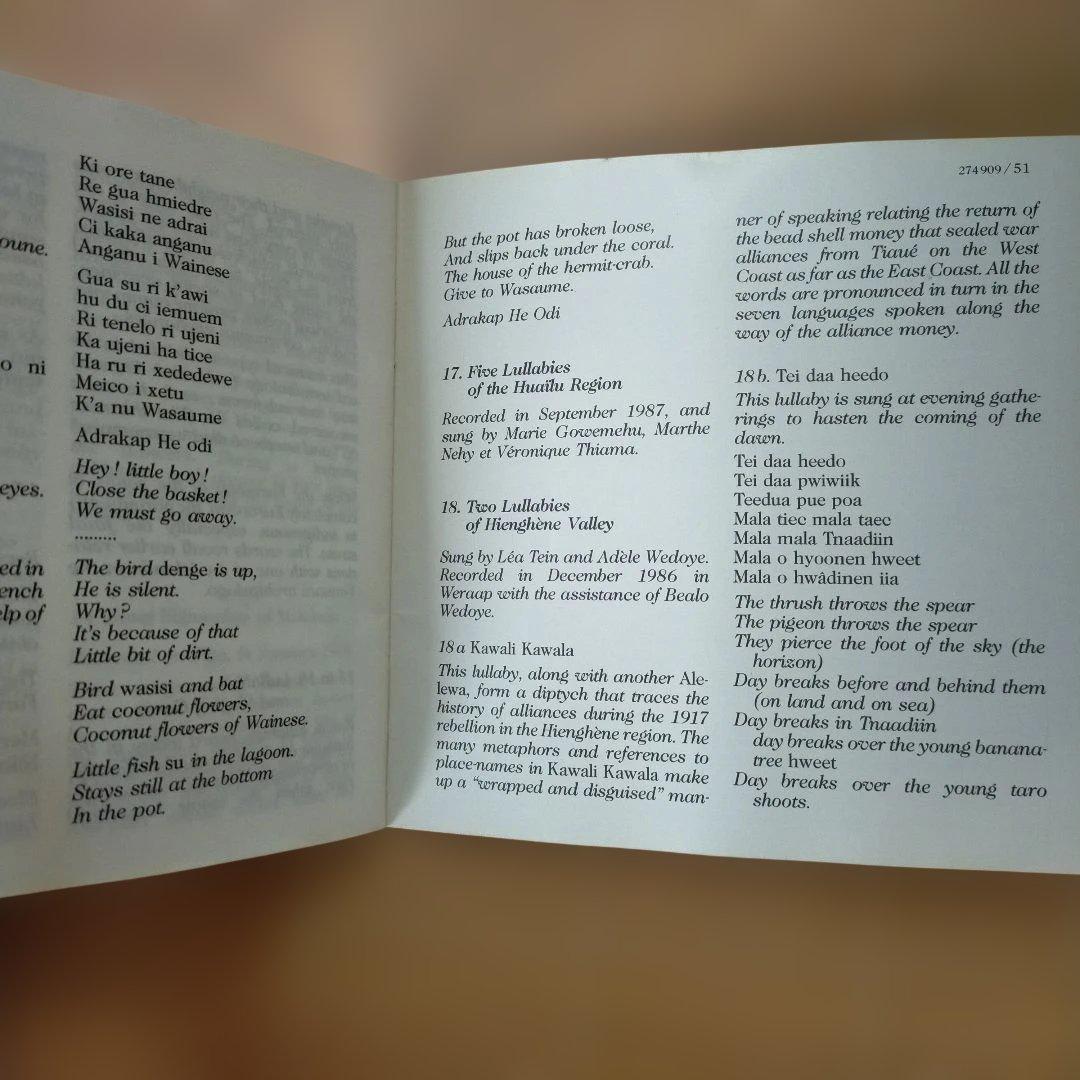 oune.
o ni
eyes.
ed in
ench
elp of
Ki ore tane
Re gua hmiedre
Wasisi ne adrai
Ci kaka anganu
Anganu i Wainese
Gua su ri k'awi
hu du ci iemuem
Ri tenelo ri ujeni
Ka ujeni ha tice
Ha ru ri xededewe
Meico i xetu
K'a nu Wasaume
Adrakap He odi
Hey ! little boy !
Close the basket !
We must go away.
.........
The bird denge is up,
He is silent.
Why ?
It's because of that
Little bit of dirt.
Bird wasisi and bat
Eat coconut flowers,
Coconut flowers of Wainese.
Little fish su in the lagoon.
Stays still at the bottom
In the pot.
274909 / 51
But the pot has broken loose,
And slips back under the coral.
The house of the hermit-crab.
Give to Wasaume.
Adrakap He Odi
17. Five Lullabies
of the Huaïlu Region
Recorded in September 1987, and
sung by Marie Gowemehu, Marthe
Nehy et Véronique Thiama.
18. Two Lullabies
of Hienghène Valley
Sung by Léa Tein and Adèle Wedoye.
Recorded in December 1986 in
Weraap with the assistance of Bealo
Wedoye.
18 a Kawali Kawala
This lullaby, along with another Ale-
lewa, form a diptych that traces the
history of alliances during the 1917
rebellion in the Hienghène region. The
many metaphors and references to
place-names in Kawali Kawala make
up a "wrapped and disguised" man-
ner of speaking relating the return of
the bead shell money that sealed war
alliances from Tiaué on the West
Coast as far as the East Coast. All the
words are pronounced in turn in the
seven languages spoken along the
way of the alliance money.
18 b. Tei daa heedo
This lullaby is sung at evening gathe-
rings to hasten the coming of the
dawn.
Tei daa heedo
Tei daa pwiwiik
Teedua pue poa
Mala tiec mala taec
Mala mala Tnaadiin
Mala o hyoonen hweet
Mala o hwâdinen iia
The thrush throws the spear
The pigeon throws the spear
They pierce the foot of the sky (the
horizon)
Day breaks before and behind them
(on land and on sea)
Day breaks in Tnaadiin
day breaks over the young banana-
tree hweet
Day breaks over the young taro
shoots.